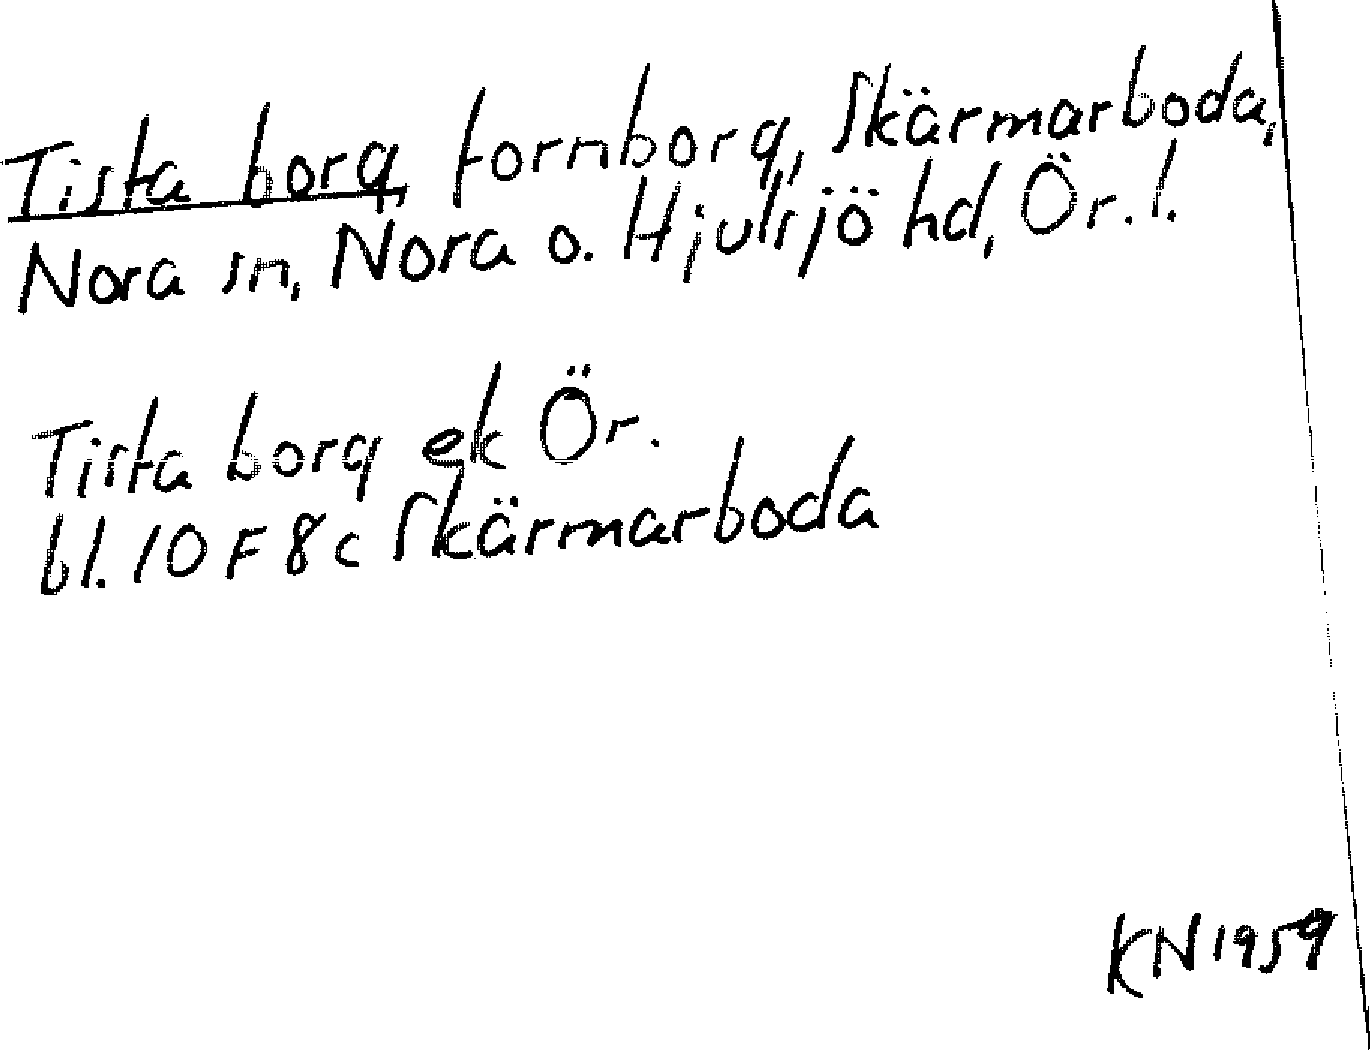 Tista borg, fornborg, Skärmarboda,
Nora sn, Nora o. Hjulsjö hd, Ör. l.
Tista borg ek Ör.
bl. 10 F 8c Skärmarboda
KN 1959